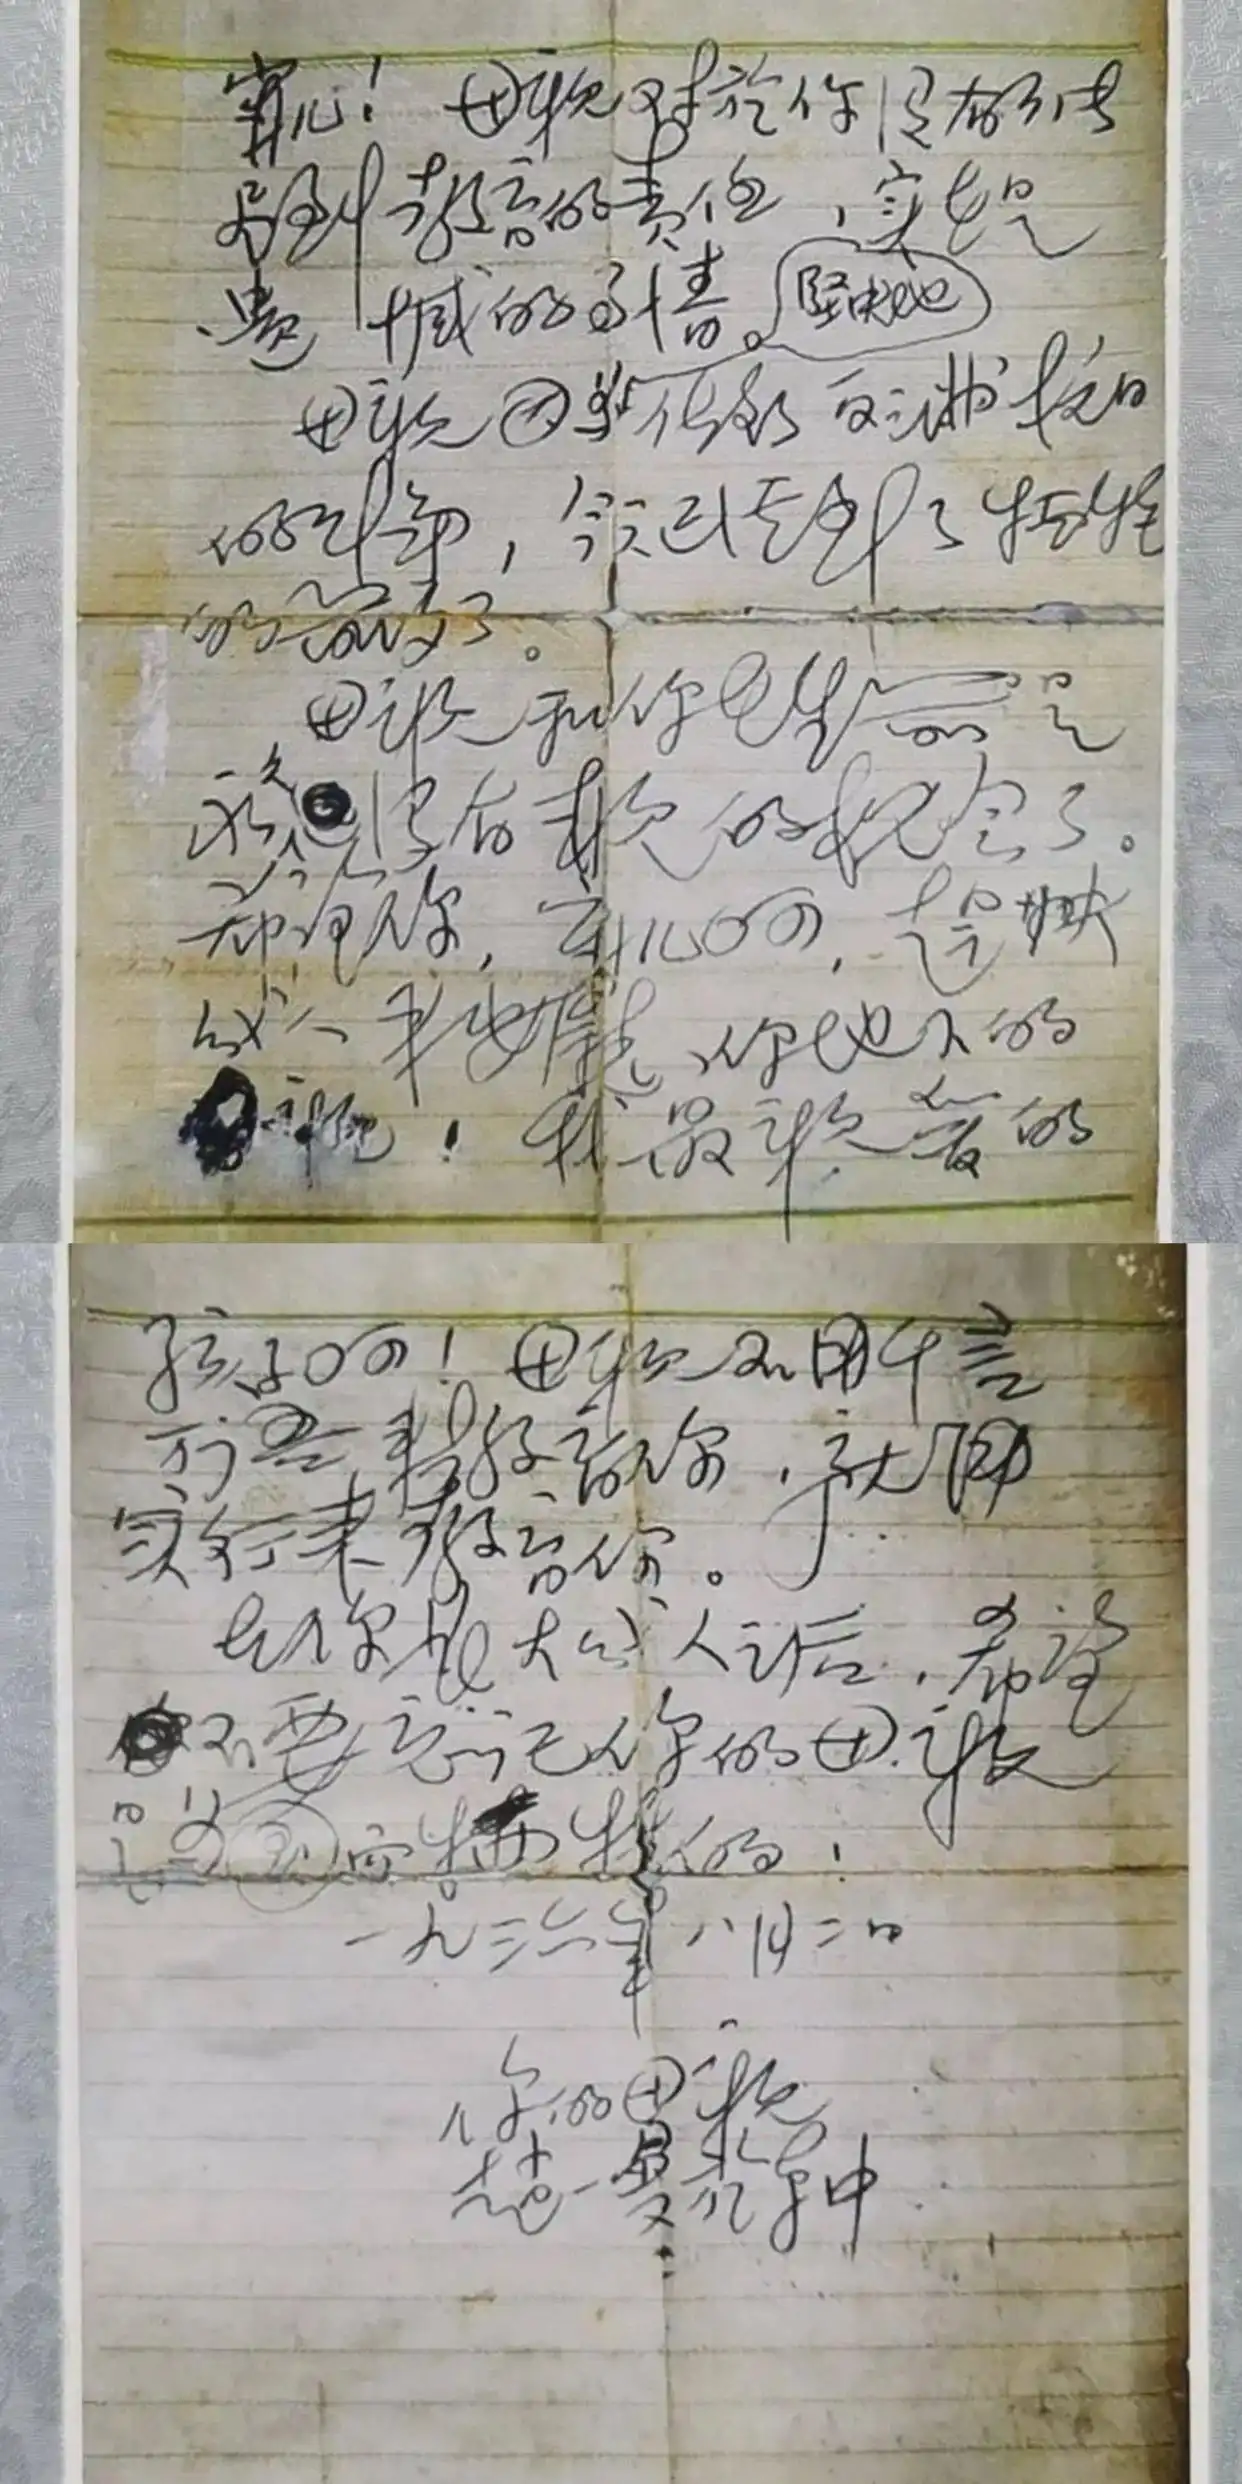 宁儿！母亲对于你没有能尽
到教育的责任，实在是
遗憾的事情。
坚决地
母亲因为坚决地做了反满抗日
的斗争，今天已经到了牺牲
的前夕了。
母亲和你在生前是
永久没有再见的机会了。
希望你，宁儿啊！赶快
成人，来安慰你地下的
母亲！我最亲爱的
孩子啊！母亲不用千言
万语来教育你，就用
实行来教育你。
在你长大成人之后，希望
不要忘记你的母亲
是为国而牺牲的！
一九三六年八月二日
你的母亲
赵一曼于车中